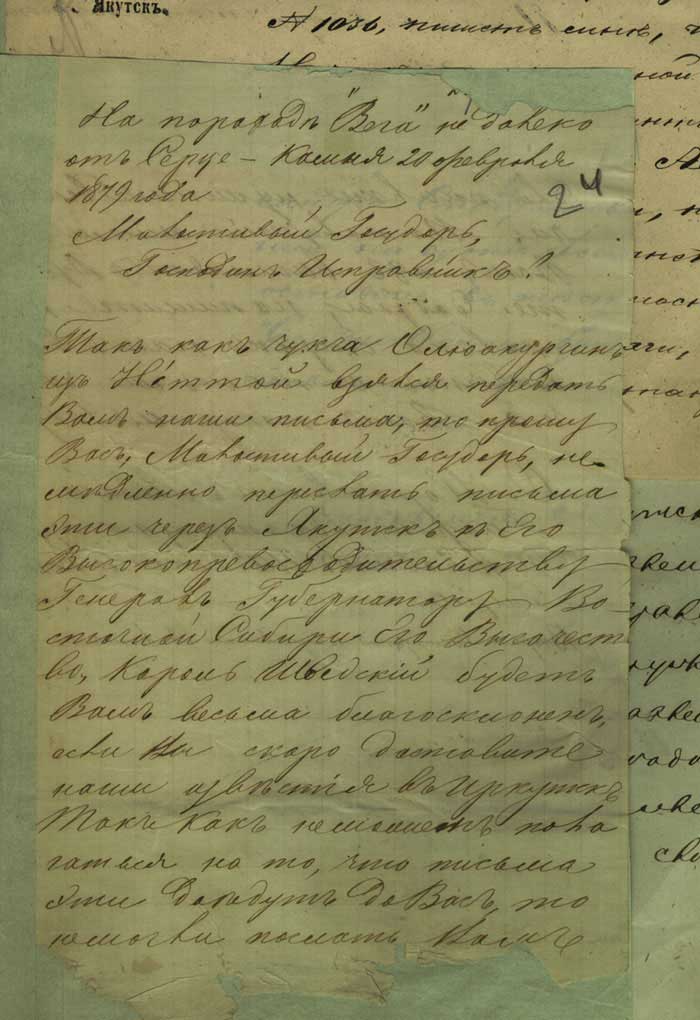 Якутскъ.
№ 1036, пишетъ мнѣ,
На пароходѣ "Вега" не далеко
отъ Серце - Камня 20 февраля
1879 года
24
Милостивый Государь,
Господинъ Исправникъ!
Такъ какъ чукча
изъ взялся передать
Вамъ наши письма, то прошу
Васъ, Милостивый Государь, не-
мѣдленно переслать письма
эти черезъ Якутскъ къ Его
Высокопревосходительству
Генералъ Губернатору Во-
сточной Сибири Его Высочест
во, Король Шведскій будетъ
Вамъ весьма благосклоненъ,
если Вы скоро доставите
наши извѣстія въ Иркутскъ
Такъ какъ неможемъ пола
гаться на то, что письма
эти дойдутъ до Васъ, то
немогли послать Вамъ